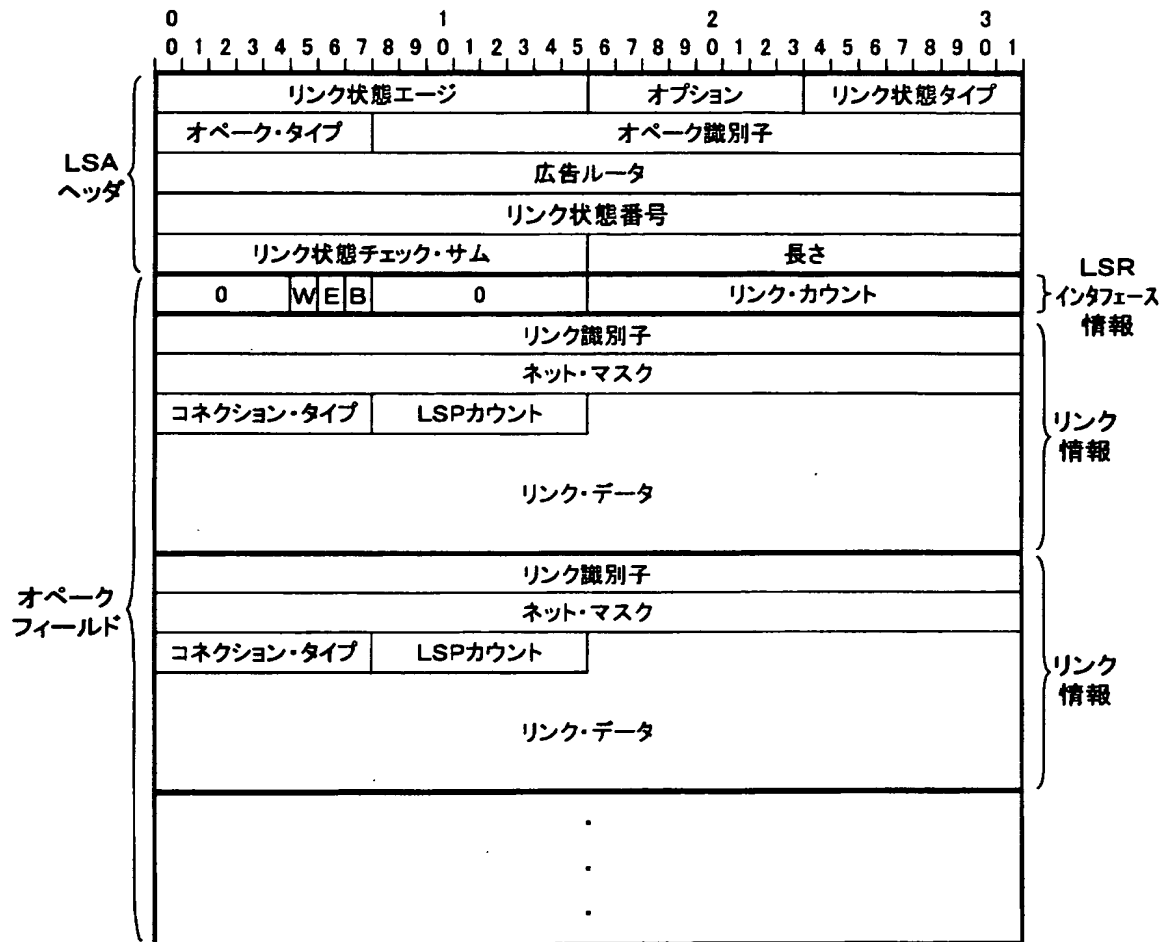 0 1 2 3
0 1 2 3 4 5 6 7 8 9 0 1 2 3 4 5 6 7 8 9 0 1 2 3 4 5 6 7 8 9 0 1
リンク状態エージ オプション リンク状態タイプ
オペーク・タイプ オペーク識別子
LSA
ヘッダ
広告ルータ
リンク状態番号
リンク状態チェック・サム 長さ
0 W E B 0 リンク・カウント
LSR
インタフェース
情報
リンク識別子
ネット・マスク
コネクション・タイプ LSPカウント
リンク・データ
リンク
情報
リンク識別子
ネット・マスク
コネクション・タイプ LSPカウント
リンク・データ
リンク
情報
オペーク
フィールド